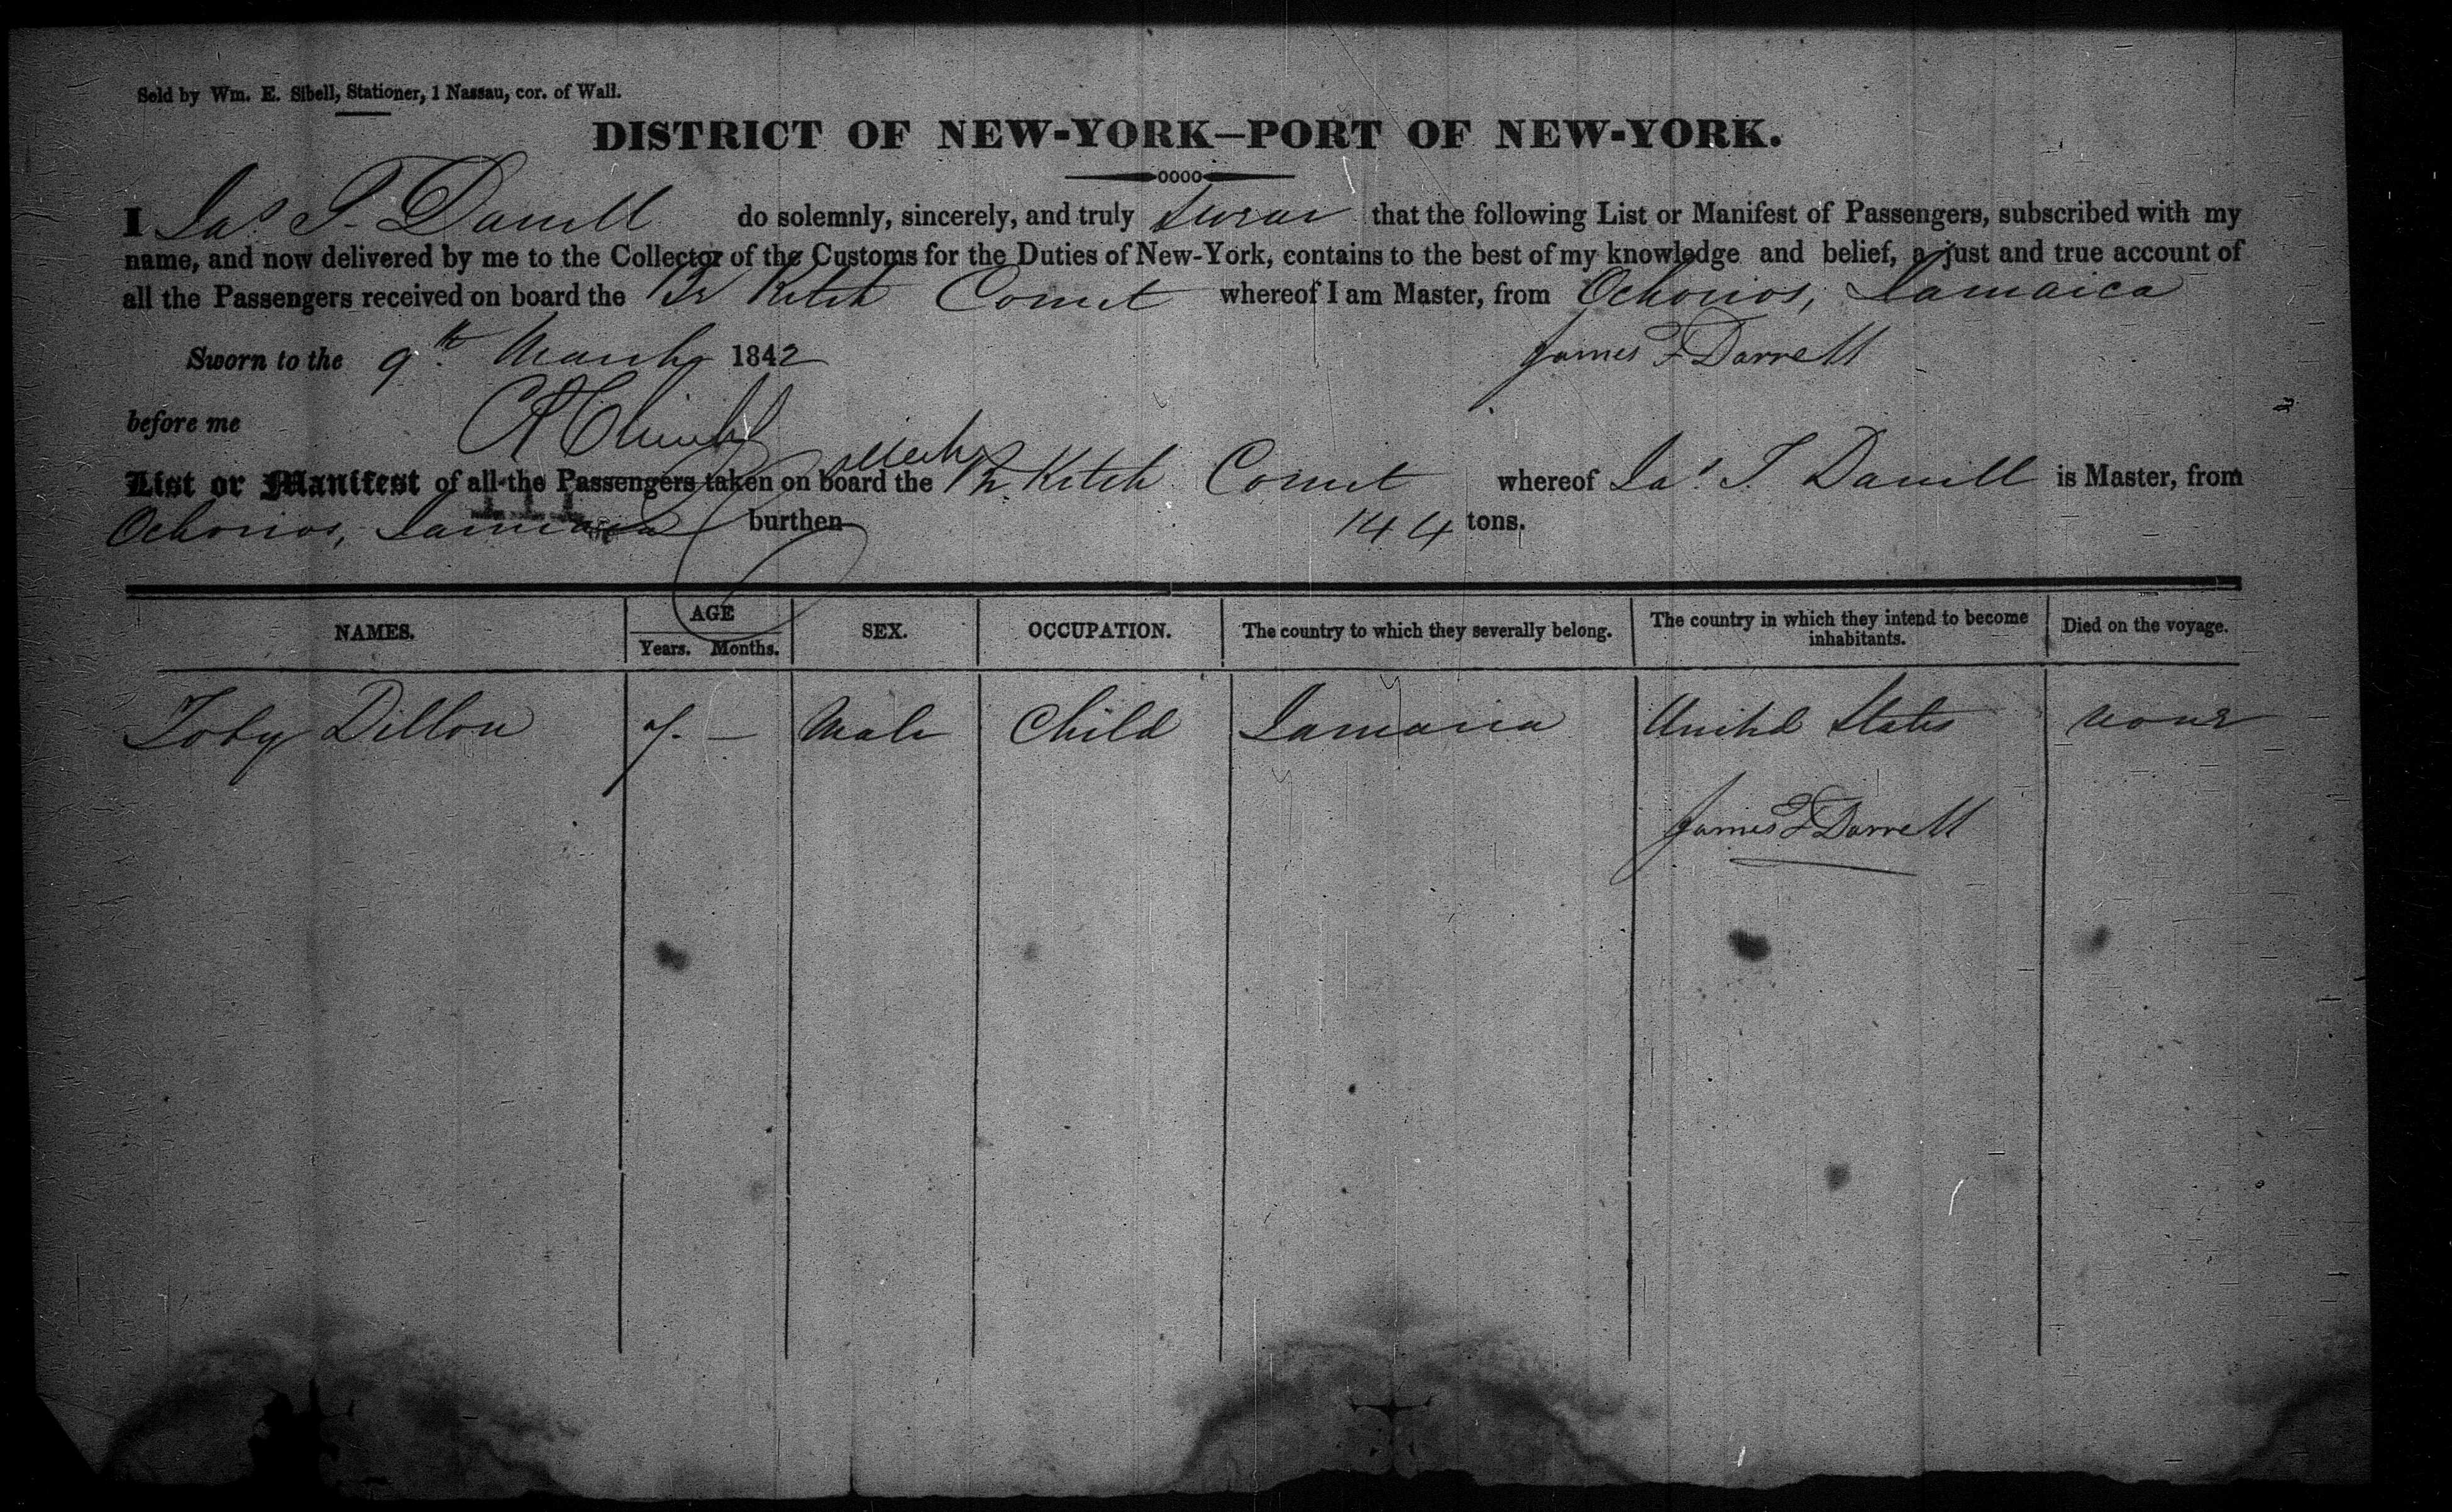 Sold by Wm. E. Sibell, Stationer, 1 Nassau, cor. of Wall.
DISTRICT OF NEW-YORK—PORT OF NEW-YORK.
I Jas. T. Darrell do solemnly, sincerely, and truly swear that the following List or Manifest of Passengers, subscribed with my
name, and now delivered by me to the Collector of the Customs for the Duties of New-York, contains to the best of my knowledge and belief, a just and true account of
all the Passengers received on board the Br Ketch Comet whereof I am Master, from Ochorios, Jamaica
Sworn to the 9th March 1842 James T Darrell
before me
List or Manifest of all the Passengers taken on board the Br Ketch Comet whereof Jas. T Darrell is Master, from
Ochorios, Jamaica burthen 144 tons.
NAMES. AGE SEX. OCCUPATION. The country to which they severally belong. The country in which they intend to become inhabitants. Died on the voyage.
Years. Months.
Toby Dillon 7. — Male Child Jamaica United States none
James T Darrell